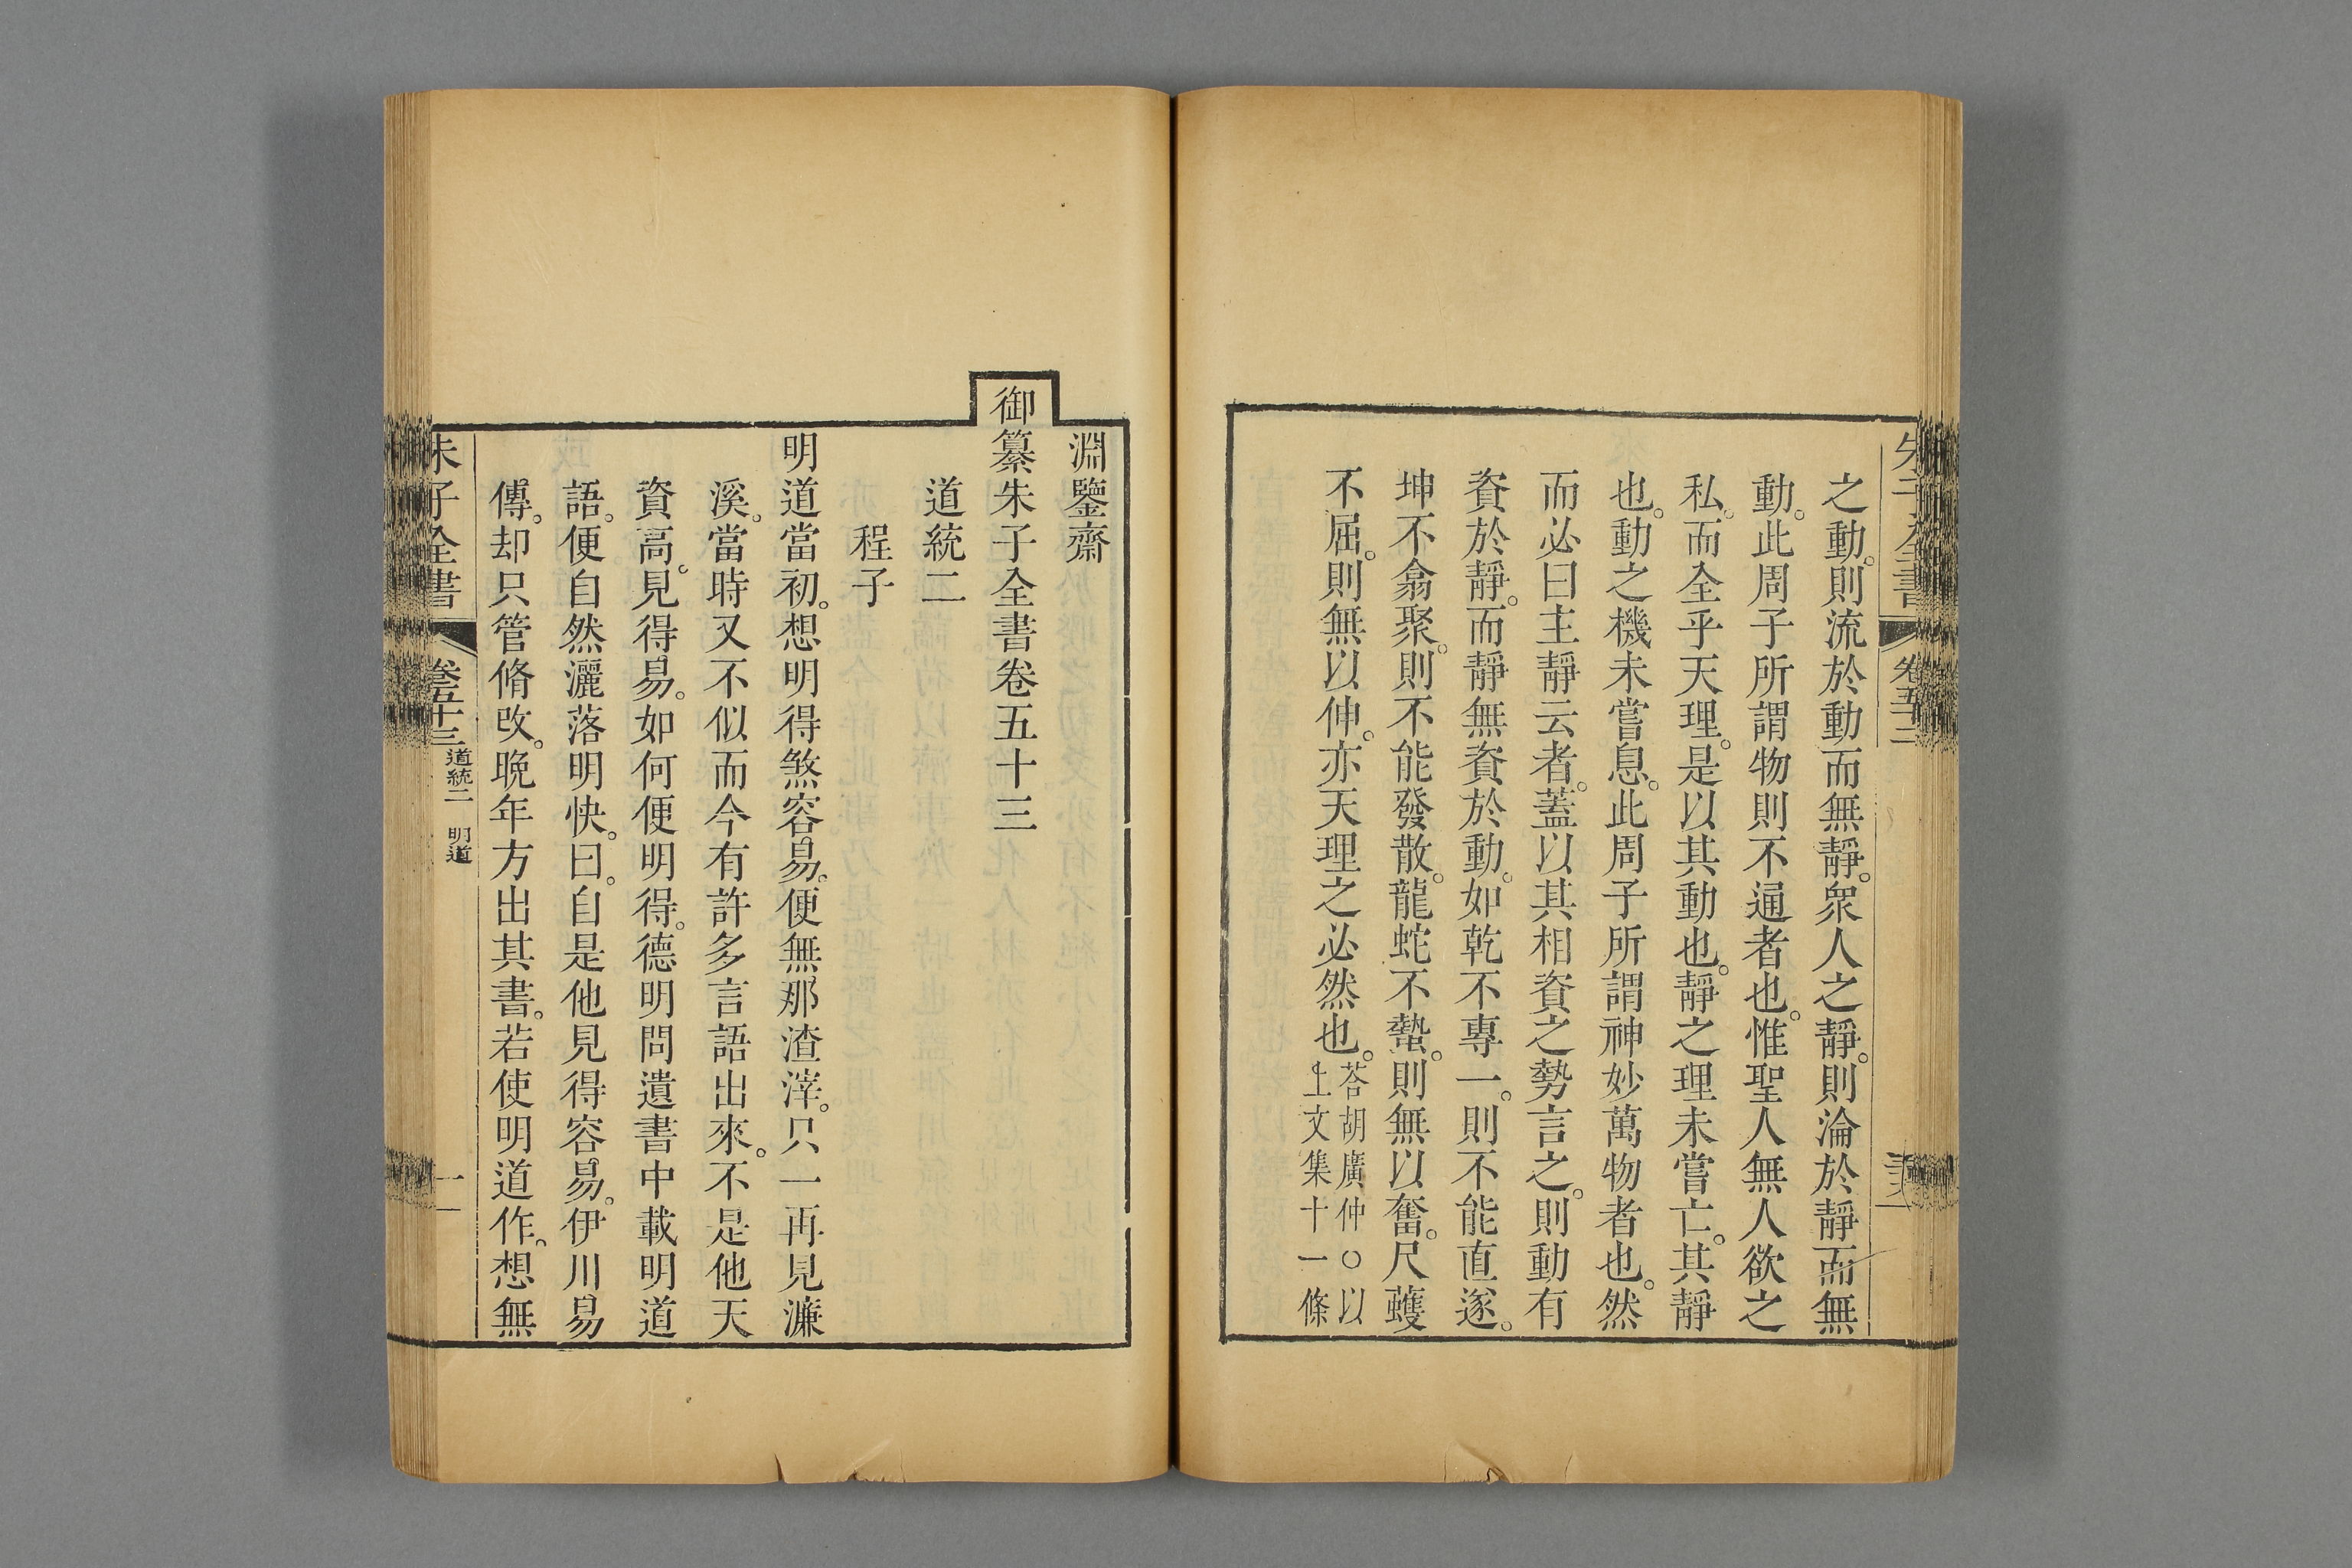 朱子全書 卷五十二
之動。則流於動而無靜。衆人之靜。則淪於靜而無
動。此周子所謂物則不通者也。惟聖人無人欲之
私。而全乎天理。是以其動也。靜之理未嘗亡。其靜
也。動之機未嘗息。此周子所謂神妙萬物者也。然
而必曰主靜云者。蓋以其相資之勢言之。則動有
資於靜。而靜無資於動。如乾不專一。則不能直遂。
坤不翕聚。則不能發散。龍蛇不蟄。則無以奮。尺蠖
不屈。則無以伸。亦天理之必然也。
荅胡廣仲○以
上文集十一條
淵鑒齋
御纂朱子全書卷五十三
道統二
程子
明道當初。想明得煞容易。便無那渣滓。只一再見濂
溪。當時又不似而今有許多言語出來。不是他天
資高。見得易。如何便明得。德明問遺書中載明道
語。便自然灑落明快。曰。自是他見得容易。伊川易
傳。却只管脩改。晚年方出其書。若使明道作。想無
朱子全書 卷五十三 道統二 明道 一